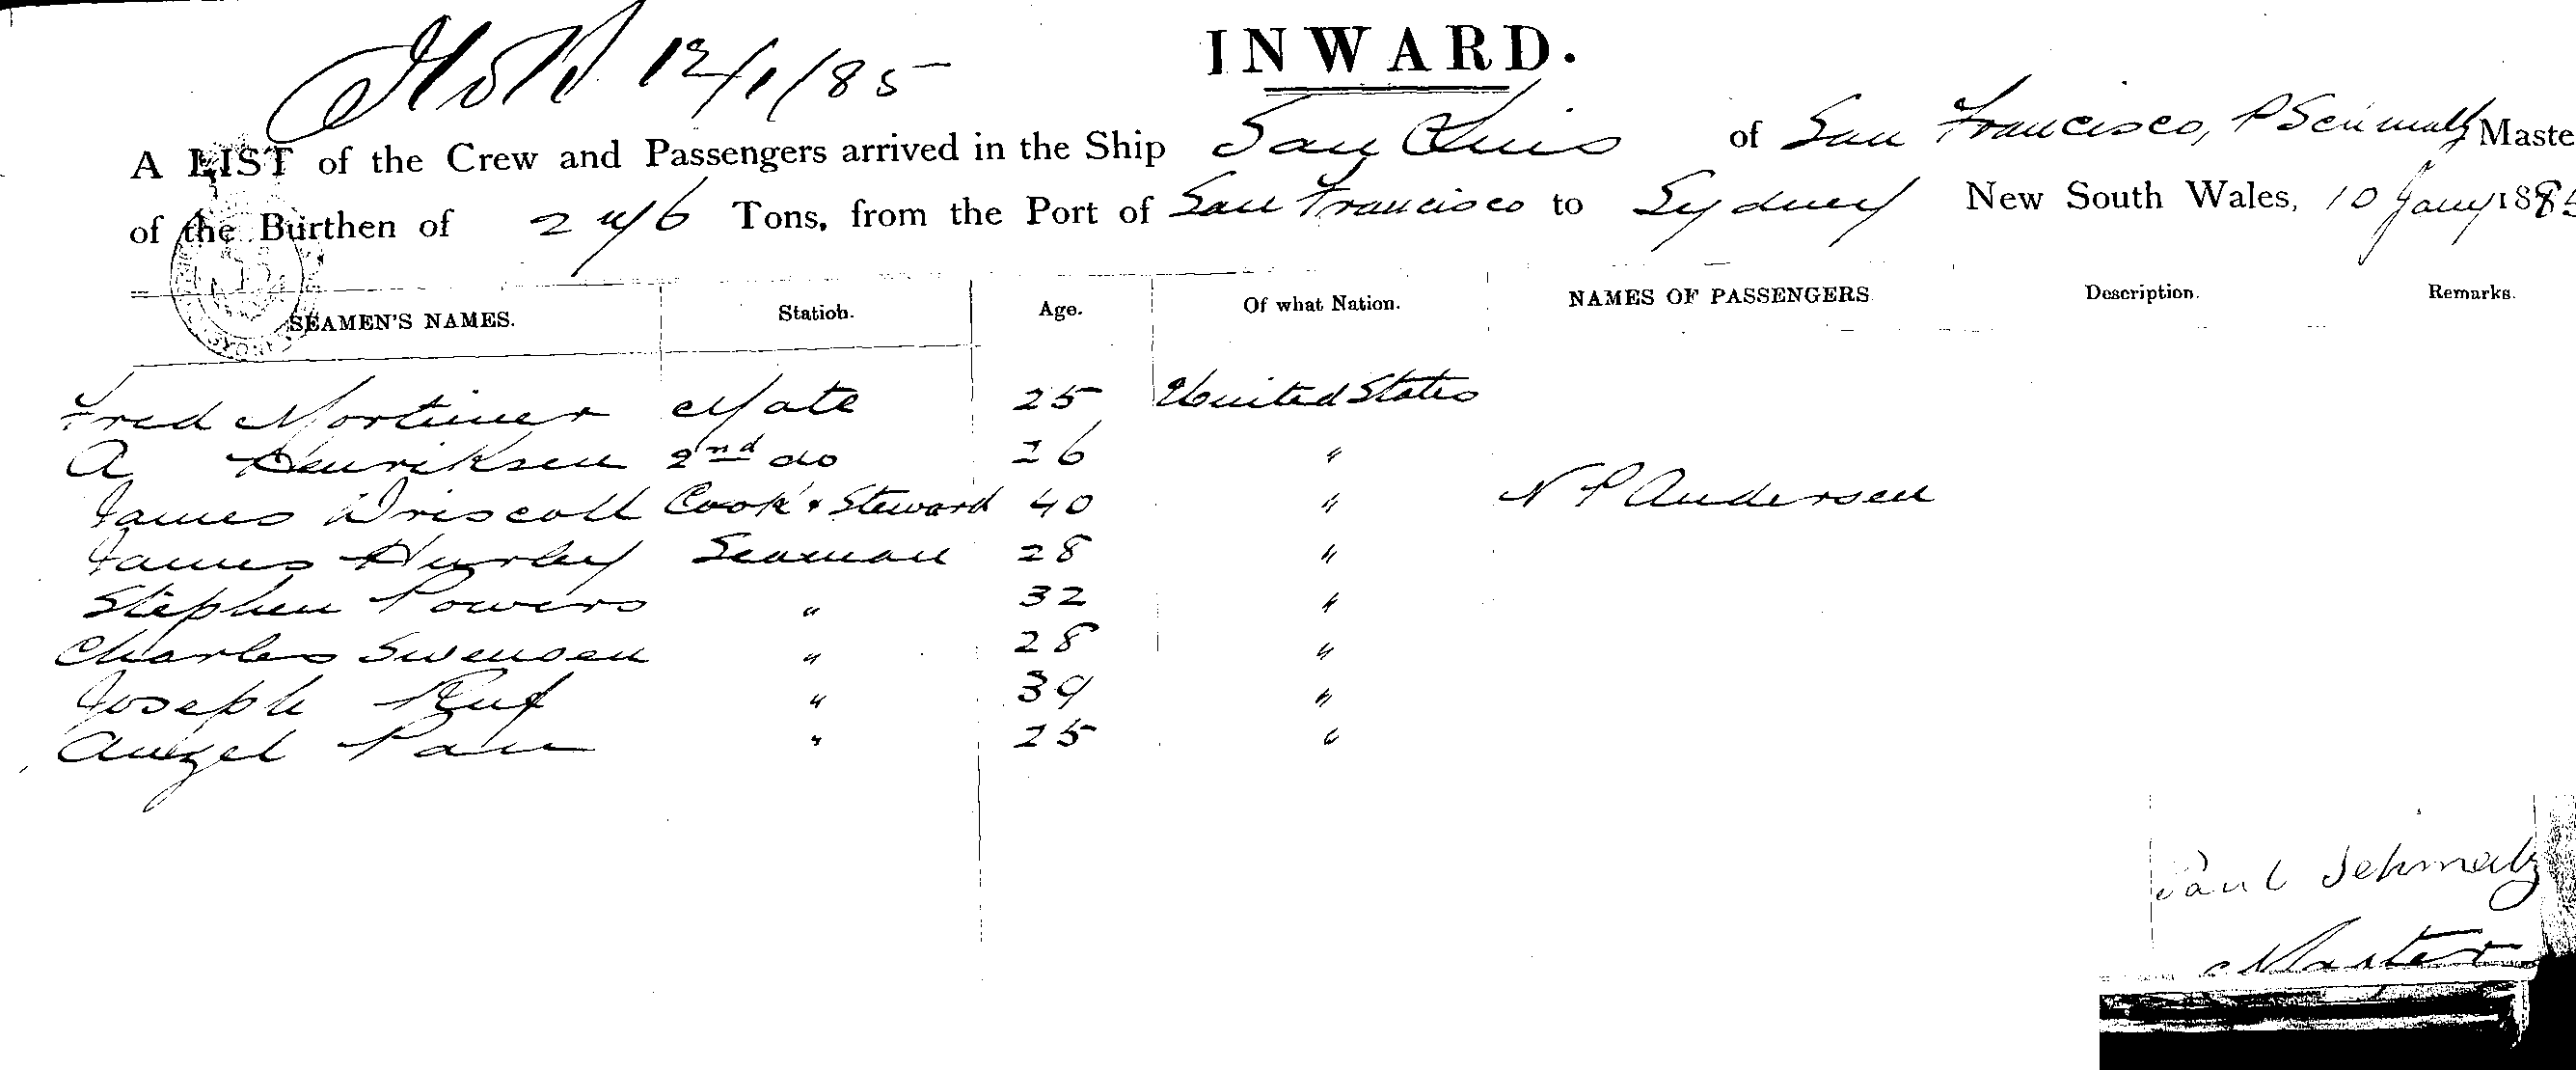 12/1/85
INWARD.
A LIST of the Crew and Passengers arrived in the Ship San Luis of San Francisco, P Schmalz Maste
of the Burthen of Tons, from the Port of San Francisco to Sydney New South Wales, 10 Jany 1885
SEAMEN'S NAMES. Station. Age. Of what Nation. NAMES OF PASSENGERS. Description. Remarks.
Fred Mortimer Mate 25 United States
A Henriksen 2nd do 26 "
James Driscoll Cook & Steward 40 " N P Andersen
James Hurley Seaman 28 "
Stephen Powers " 32 "
Charles Swensen " 28 "
Joseph Ruf " 39 "
" 25 "
Paul Schmalz
Master